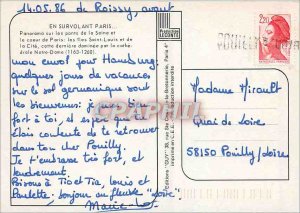 14.05.86 de Roissy, avant
mon envol pour Hambourg
quelques jours de vacances
sur le sol germanique sont
les bienvenus; je pense bien
fort à toi, et espère que tu
étais contente de te retrouver
dans ton cher Pouilly.
Je t'embrasse très fort, et
tendrement.
Bisous à Tio et Tia, Louis et
Paulette. bonjour au fleuve "Loire"
EN SURVOLANT PARIS...
Panorama sur les ponts de la Seine et
le coeur de Paris: les Iles Saint-Louis et de
la Cité, cette dernière dominée par la cathé-
drale Notre-Dame (1163-1260).
2,20
POUILLY
Madame Mirault
Quai de Loire
58150 Pouilly/Loire
PARIS